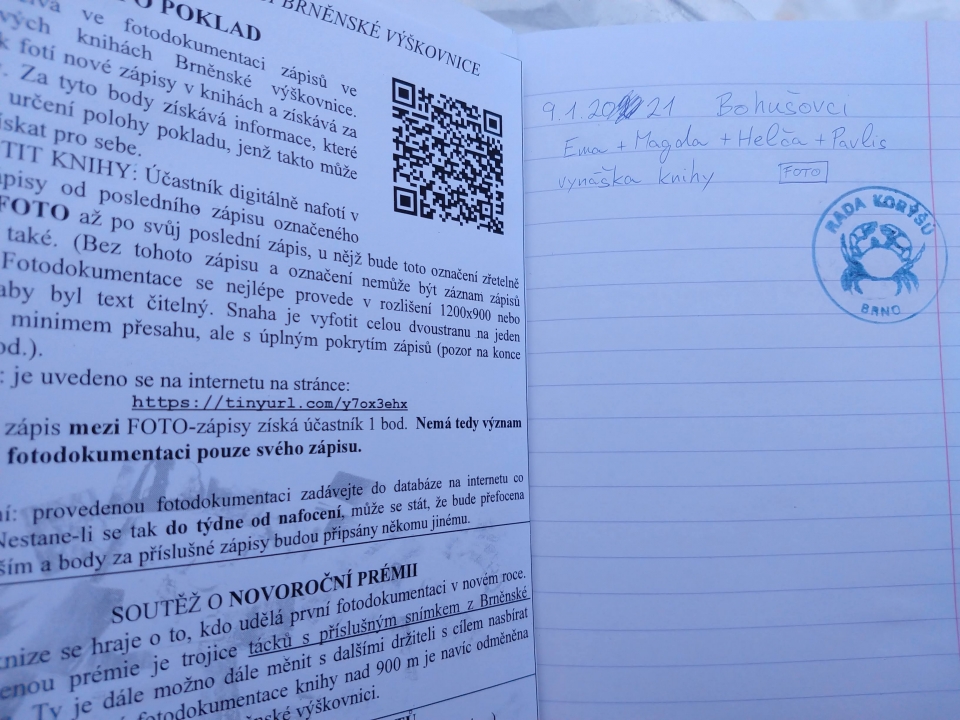 BRNĚNSKÉ VÝŠKOVNICE
POKLAD
ve fotodokumentaci zápisů ve
knihách Brněnské výškovnice.
fotí nové zápisy v knihách a získává za
Za tyto body získává informace, které
určení polohy pokladu, jenž takto může
získat pro sebe.
KNIHY: Účastník digitálně nafotí v
od posledního zápisu označeného
FOTO až po svůj poslední zápis, u nějž bude toto označení zřetelně
také. (Bez tohoto zápisu a označení nemůže být záznam zápisů
Fotodokumentace se nejlépe provede v rozlišení 1200x900 nebo
aby byl text čitelný. Snaha je vyfotit celou dvoustranu na jeden
minimem přesahu, ale s úplným pokrytím zápisů (pozor na konce
je uvedeno se na internetu na stránce:
https://tinyurl.com/y7ox3ehx
zápis mezi FOTO-zápisy získá účastník 1 bod. Nemá tedy význam
fotodokumentaci pouze svého zápisu.
provedenou fotodokumentaci zadávejte do databáze na internetu co
Nestane-li se tak do týdne od nafocení, může se stát, že bude přefocena
a body za příslušné zápisy budou připsány někomu jinému.
SOUTĚŽ O NOVOROČNÍ PRÉMII
se hraje o to, kdo udělá první fotodokumentaci v novém roce.
prémie je trojice tácků s příslušným snímkem z Brněnské
Ty je dále možno dále měnit s dalšími držiteli s cílem nasbírat
fotodokumentace knihy nad 900 m je navíc odměněna
výškovnici.
9.1. 2021 Bohušovci
Ema + Magda + Helča + Pavlis
vynáška knihy FOTO
RADA KORÝŠŮ
BRNO